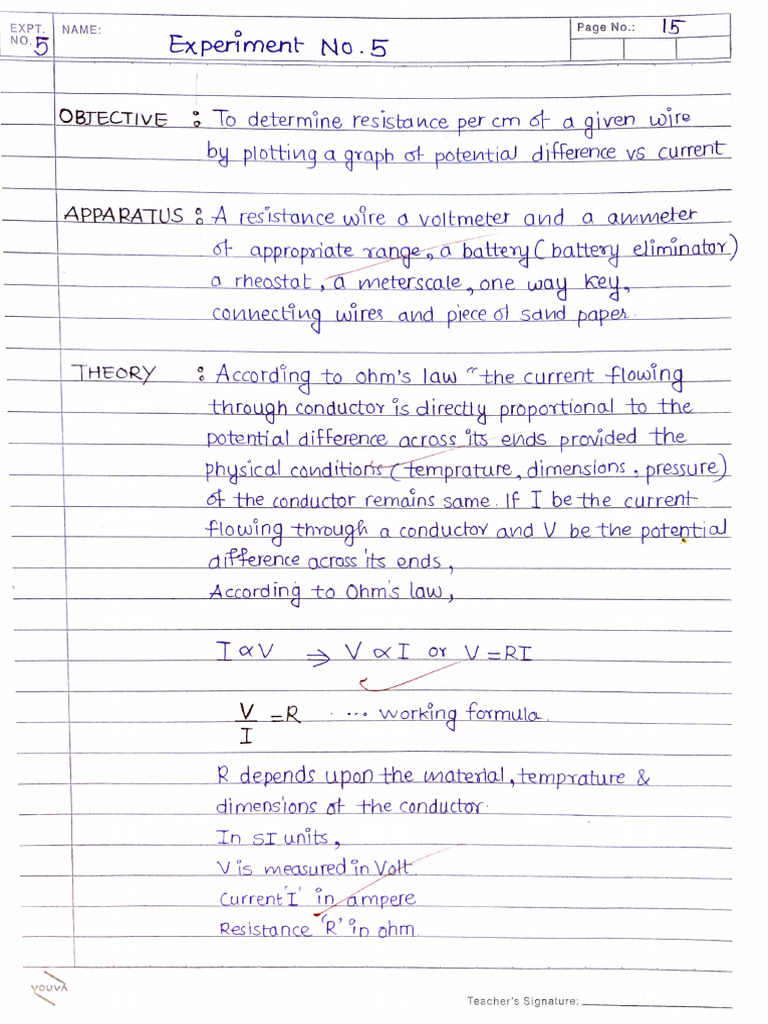 EXPT. NO. 5 NAME: Experiment No. 5 Page No.: 15
OBJECTIVE : To determine resistance per cm of a given wire
by plotting a graph of potential difference vs current
APPARATUS : A resistance wire a voltmeter and a ammeter
of appropriate range, a battery (battery eliminator)
a rheostat, a meterscale, one way key,
connecting wires and piece of sand paper.
THEORY : According to ohm's law "the current flowing
through conductor is directly proportional to the
potential difference across its ends provided the
physical conditions (temprature, dimensions, pressure)
of the conductor remains same. If I be the current
flowing through a conductor and V be the potential
difference across its ends,
According to Ohm's law,
I ∝ V ⇒ V ∝ I or V = RI
V/I = R ... working formula.
R depends upon the material, temprature &
dimensions of the conductor.
In SI units,
V is measured in Volt.
Current 'I' in ampere
Resistance 'R' in ohm.
YOUVA
Teacher's Signature: